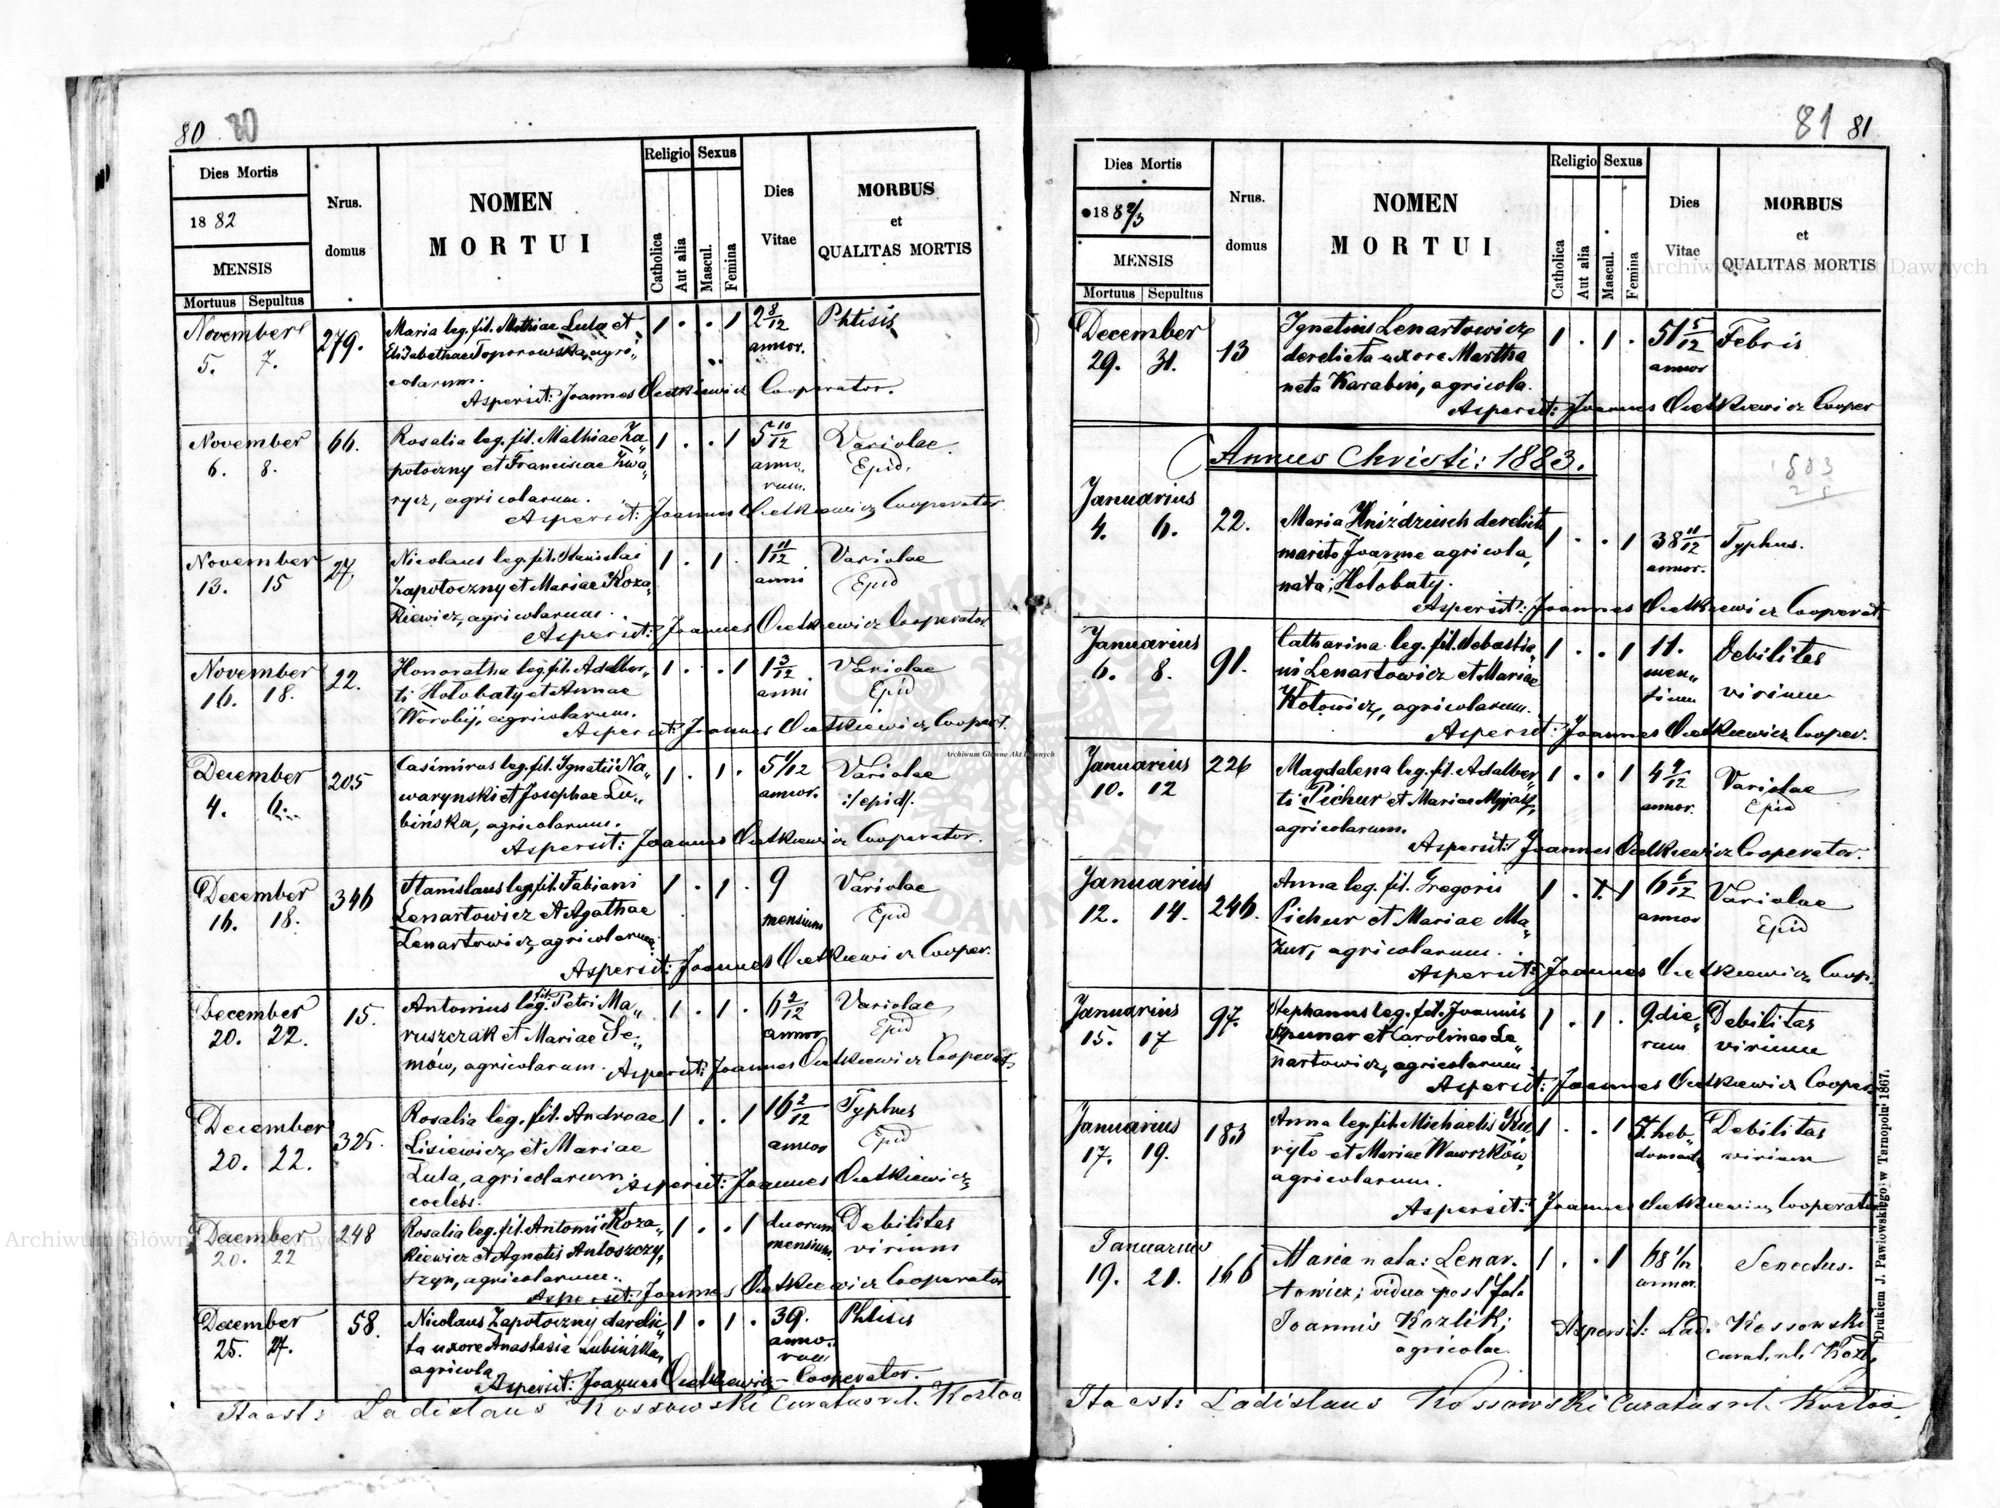 80 80
Dies Mortis
1882
MENSIS
Mortuus Sepultus
Nrus. domus
NOMEN
MORTUI
Religio Sexus
Catholica Aut alia Mascul. Femina
Dies Vitae
MORBUS
et
QUALITAS MORTIS
November 279. Maria leg. fil. Mathiae Lula et 1 . . 1 2 8/12 Phtisis
5. 7. Elisabethae Toporowska, agri„ annor.
colarum.
Aspersit: Joannes Cooperator.
November 66. Rosalia leg. fil. Mathiae Za„ 1 . . 1 5 10/12 Variolae
6. 8. potoczny et Franciscae Zwa„ anno„ Epid.
rycz, agricolarum. rum.
Aspersit: Joannes Cooperator
November 27. Nicolaus leg. fil. Stanislai 1 . 1 . 1 11/12 Variolae
13. 15 Zapotoczny et Mariae Koza„ anni Epid
kiewicz, agricolarum.
Aspersit: Joannes Cooperator
November 22. Honoratha leg. fil. Adalber„ 1 . . 1 1 3/12 Variolae
16. 18. ti Hołobaty et Annae anni Epid
Worobij, agricolarum.
Aspersit: Joannes Cooperat.
December 205 Casimirus leg. fil. Ignatii Na„ 1 . 1 . 5 1/12 Variolae
4. 6. warynski et Josephae Lu„ annor. :/epid/.
bińska, agricolarum.
Aspersit: Joannes Cooperator.
December 346 Stanislaus leg. fil. Fabiani 1 . 1 . 9 Variolae
16. 18. Lenartowicz et Agathae mensium Epid
Lenartowicz, agricolarum
Aspersit: Joannes Cooper.
December 15. Antonius leg. fil. Petri Ma„ 1 . 1 . 6 2/12 Variolae
20. 22. ruszczak et Mariae Se„ annor Epid
mów, agricolarum. Aspersit: Joannes Cooperat.
December 325. Rosalia leg. fil. Andreae 1 . . 1 16 2/12 Typhus
20. 22. Lisiewicz et Mariae annor Epid
Lula, agricolarum Aspersit: Joannes
coelebs.
December 248 Rosalia leg. fil. Antonii Koza„ 1 . . 1 duorum Debilitas
20. 22 kiewicz et Agnetis Antoszczy„ mensium virium
szyn, agricolarum.
Aspersit: Joannes Cooperator
December 58. Nicolaus Zapotoczny derelic„ 1 . 1 . 39. Phtisis
25. 27. ta uxore Anastasia Lubińska anno„
agricola rum
Aspersit: Joannes Cooperator.
Ita est: Ladislaus Kossowski Curatus r. l. Kozłow
81 81
Dies Mortis
188 2/3
MENSIS
Mortuus Sepultus
Nrus. domus
NOMEN
MORTUI
Religio Sexus
Catholica Aut alia Mascul. Femina
Dies Vitae
MORBUS
et
QUALITAS MORTIS
December 13 Ignatius Lenartowicz 1 . 1 . 51 5/12 Febris
29. 31. derelicta uxore Martha annor
nata Karabin, agricola.
Aspersit: Joannes Cooper
Annus Christi: 1883.
Januarius 22. Maria Hnizdziuch derelicto 1 . . 1 38 11/12 Typhus.
4. 6. marito Joanne agricola, annor.
nata: Hołobaty.
Aspersit: Joannes Cooperat.
Januarius 91. Catharina leg. fil. Sebastia„ 1 . . 1 11. Debilitas
6. 8. ni Lenartowicz et Mariae men„ virium
Kotowicz, agricolarum. sium
Aspersit: Joannes Cooper.
Januarius 226 Magdalena leg. fil. Adalber„ 1 . . 1 4 9/12 Variolae
10. 12 ti Pichur et Mariae annor. Epid
agricolarum.
Aspersit: Joannes Cooperator.
Januarius 246. Anna leg. fil. Gregorii 1 . 1 6 6/12 Variolae
12. 14. Pichur et Mariae Ma„ annor Epid
zur, agricolarum.
Aspersit: Joannes Coop.
Januarius 97. Stephanus leg. fil. Joannis 1 . 1 . 9. die„ Debilitas
15. 17 et Carolinae Le„ rum virium
nartowicz, agricolarum
Aspersit: Joannes Cooper
Januarius 183 Anna leg. fil. Michaelis Ku„ 1 . . 1 heb„ Debilitas
17. 19. ryło et Mariae Wawrzków, domad. virium
agricolarum.
Aspersit: Joannes Cooperator
Januarius 166 Maria nata: Lenar- 1 . . 1 68 1/12 Senectus.
19. 21. towicz; vidua post annor.
Joannis Kozlik;
agricolae. Aspersit: Lad. Kossowski
curat. r. l. Kozł.
Ita est: Ladislaus Kossowski Curatus r. l. Kozłow
Drukiem J. Pawłowskiego w Tarnopolu 1867.
Archiwum Główne Akt Dawnych